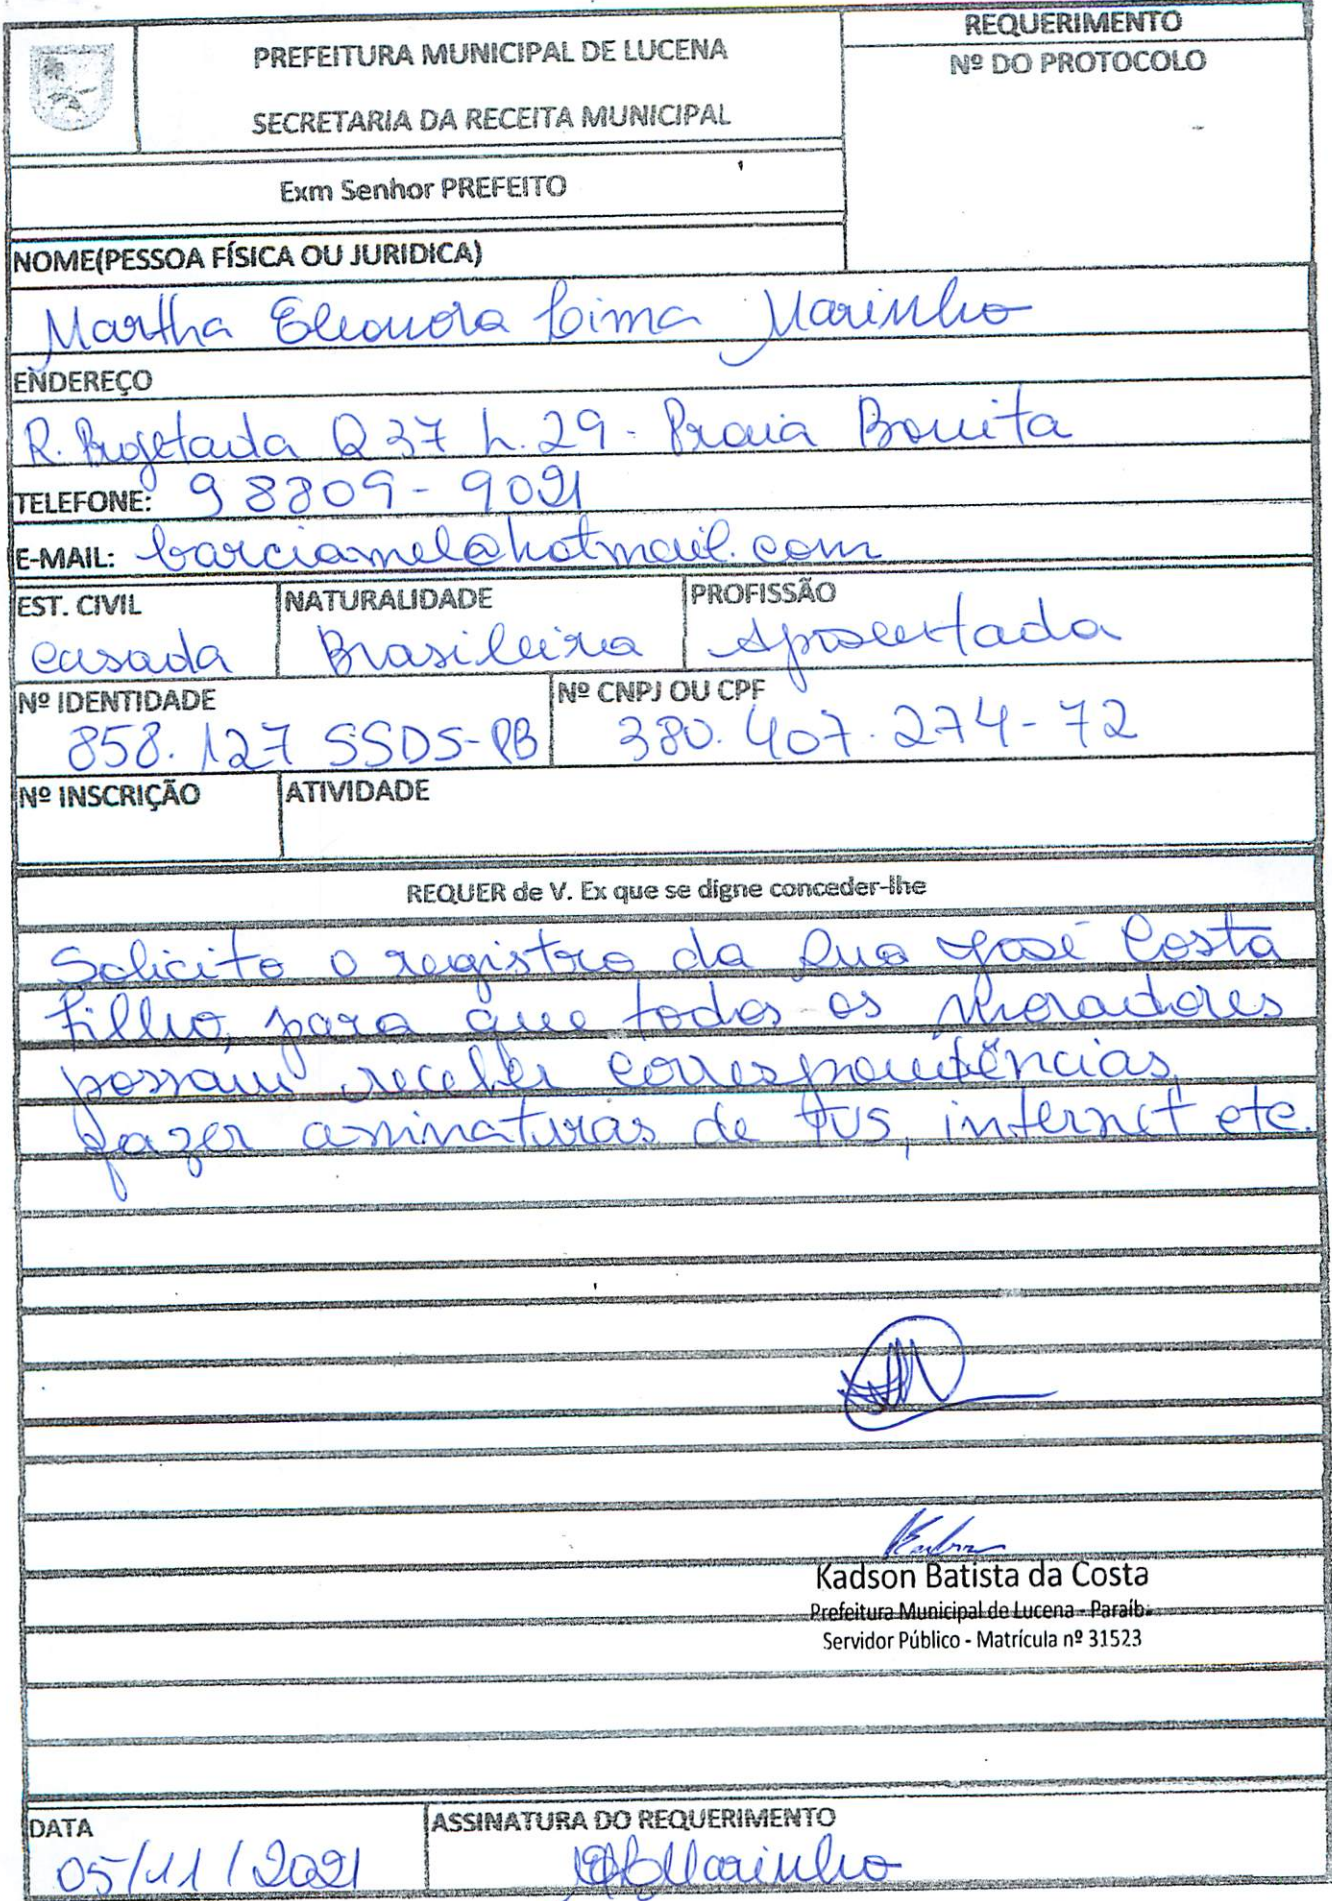 PREFEITURA MUNICIPAL DE LUCENA
SECRETARIA DA RECEITA MUNICIPAL
REQUERIMENTO
Nº DO PROTOCOLO
Exm Senhor PREFEITO
NOME(PESSOA FÍSICA OU JURIDICA)
Martha Eleonora Lima Marinho
ENDEREÇO
R. Projetada Q 37 L. 29 - Praia Bonita
TELEFONE: 98809-9021
E-MAIL: barciamel@hotmail.com
EST. CIVIL NATURALIDADE PROFISSÃO
casada Brasileira Aposentada
Nº IDENTIDADE Nº CNPJ OU CPF
858.127 SSDS-PB 380.407.274-72
Nº INSCRIÇÃO ATIVIDADE
REQUER de V. Ex que se digne conceder-lhe
Solicito o registro da Rua José Costa
Filho, para que todos os moradores
possam receber correspondências,
fazer assinaturas de tvs, internet etc.
Kadson Batista da Costa
Prefeitura Municipal de Lucena - Paraíb
Servidor Público - Matrícula nº 31523
DATA ASSINATURA DO REQUERIMENTO
05/11/2021 Marinho